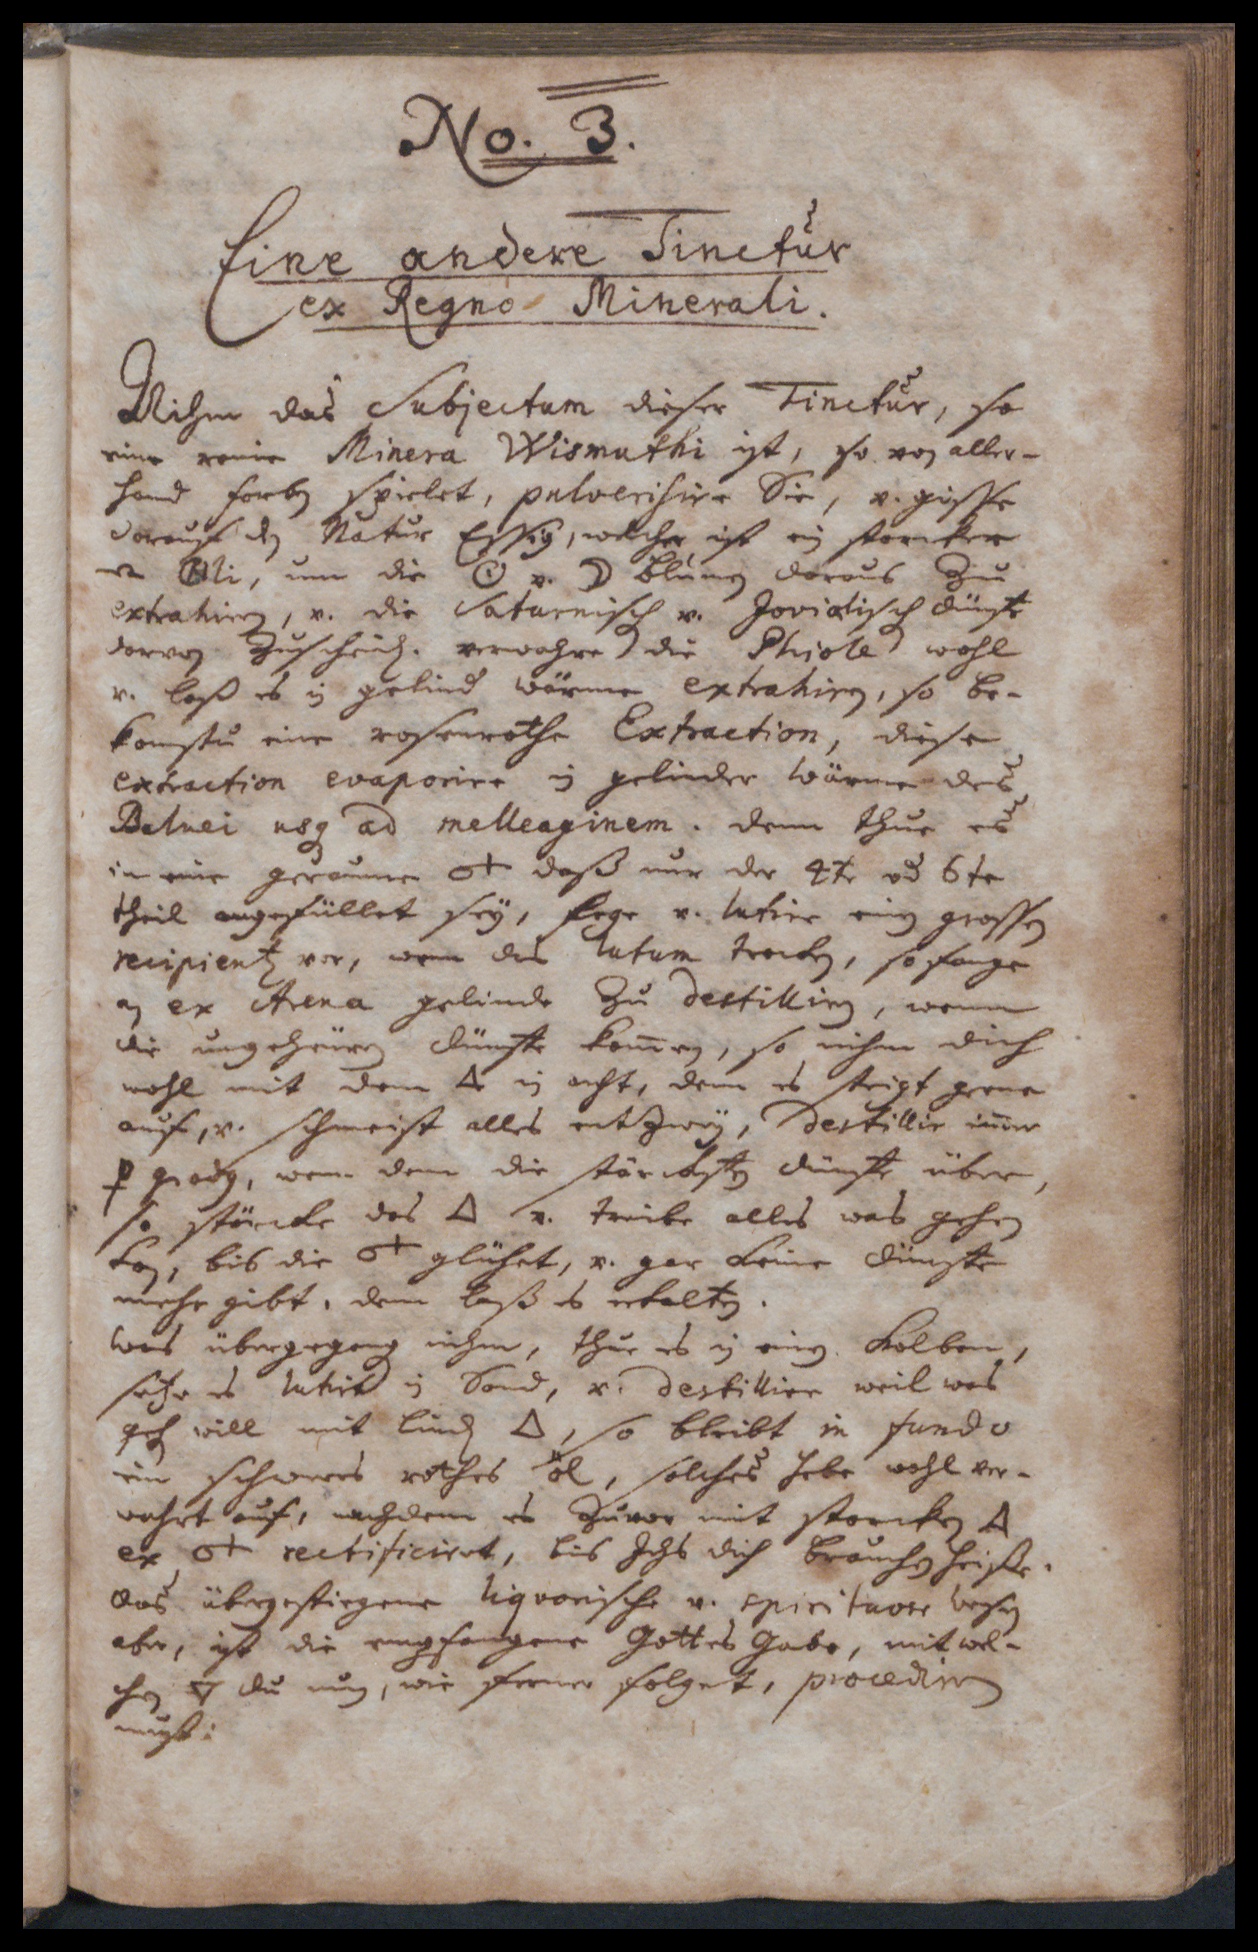 No. 3.
Eine andere Tinctur
ex Regno Minerali.
Nihm das Subjectum dieser Tinctur, so
eine reine Minera Wismuthi ist, so von aller-
hand farben spielet, pulverisire Sie, v. giesse
darauf den Natur Essig, welcher ist ein starcker
um die ☉ v. ☽ blumen daraus Zu
extrahiren, v. die Saturnisch v. Jovialisch dünste
darvon Zuscheid. verwahre die Phiole wohl
v. laß es in gelind wärme extrahiren, so be-
komstu eine rosenrothe Extraction, diese
extraction evaporire in gelinder Wärme des
Balnei usq ad melleaginem. denn thue es
in eine geraume daß nur der 4te od 6te
theil angefüllet sey, lege v. lutire einen grossen
recipienten vor, wenn das lutum trocken, so fange
an ex Arena gelinde Zu destilliren, wenn
die ungeheuren dünste kom̄en, so nihm dich
wohl mit dem △ in acht, denn es steigt gerne
auf, v. schmeist alles entzwey, destillir im̄er
p gradus, wenn denn die stärcksten dünste über,
so stärcke das △ v. treibe alles was gehen
kan, bis die glühet, v. gar keine dünste
mehr gibt, denn laß es erkalten.
was übergegang nihm, thue es in einen Kolben,
setze es lutirt in Sand, v. destillire weil was
geh will mit lind △, so bleibt in fundo
ein schweres rothes öl, solches hebe wohl ver-
wahrt auf, nachdem es Zuvor mit starcken △
ex rectificirt, bis Ichs dich brauchen heisse.
das übergestiegene liquorische v. spirituose wesen
aber, ist die empfangene Gottes Gabe, mit wel-
chen ▽ du nun, wie ferner folget, procediren
must: